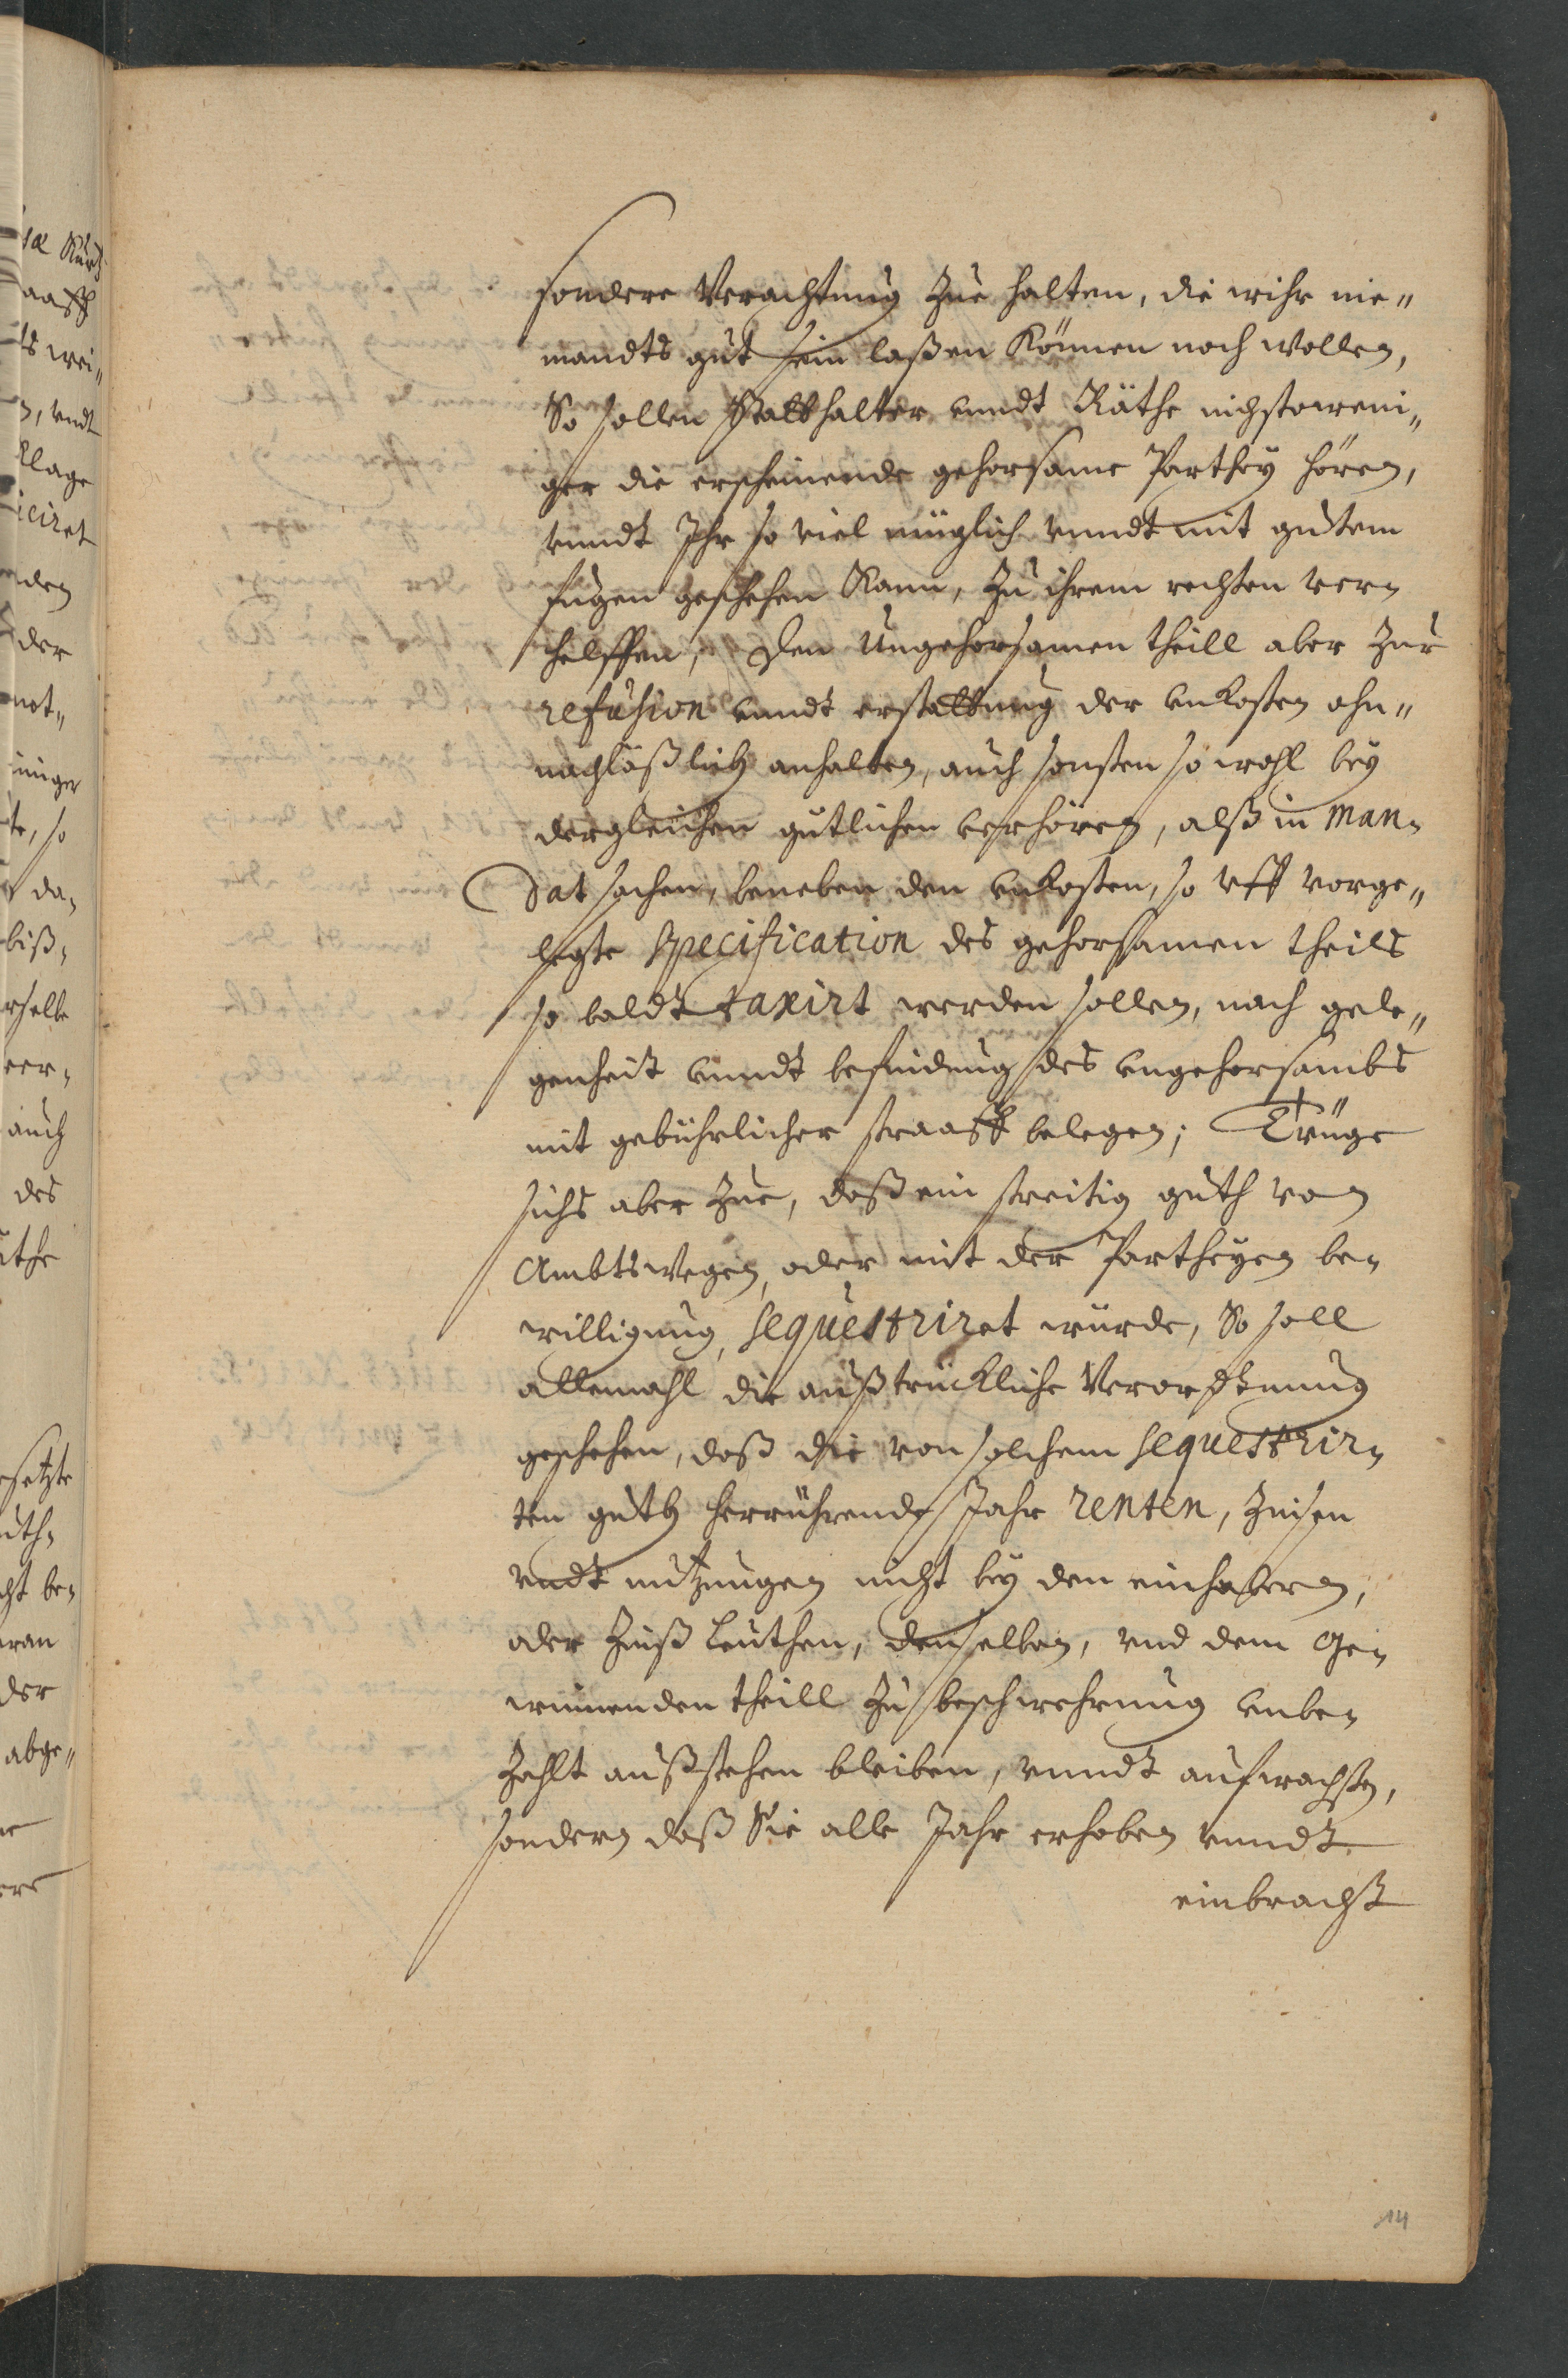 sondere Verachtung zue halten, die wihr nie„
mandts gut sein laßen können noch wollen,
So sollen Statthalter vnndt Räthe nichstoweni„
ger die erscheinende gehorsame Parthey hören,
vnndt Ihr so viel müglich vnndt mit gutem
fugen geschehen kann, zu ihrem rechten ver¬
helffen, Den Ungehorsamen theill aber zur
refusion vnndt erstattung der vnkosten ohn„
nachläßlich anhalten, auch sonsten so wohl bey
dergleichen gütlichen verhören, alß in Man¬
dat sachen, beneben den vnkosten, so vff vorge„
legte specification des gehorsamen theils
so baldt taxirt werden sollen, nach gele„
genheit vnndt befindung des vngehorsambs
mit gebührlicher straaff belegen; Trüge
sichs aber zue, daß ein streitig guth von
Ambtswegen, oder mit der Partheyen be¬
willigung, sequestriret würde, So soll
allemahl die außtrückliche Verordtnung
geschehen, daß die von solchem sequestrir¬
ten guth herrührende Jahr renten, zinsen
vndt nutzungen nicht bey den einhabern,
oder Zinß Leuthen, denselben, vnd dem Ge¬
winnenden theill zu beschwehrung vnbe¬
zahlt außstehen bleiben, vnndt aufwachsen,
sondern daß Sie alle Jahr erhoben vnndt
einbracht
14